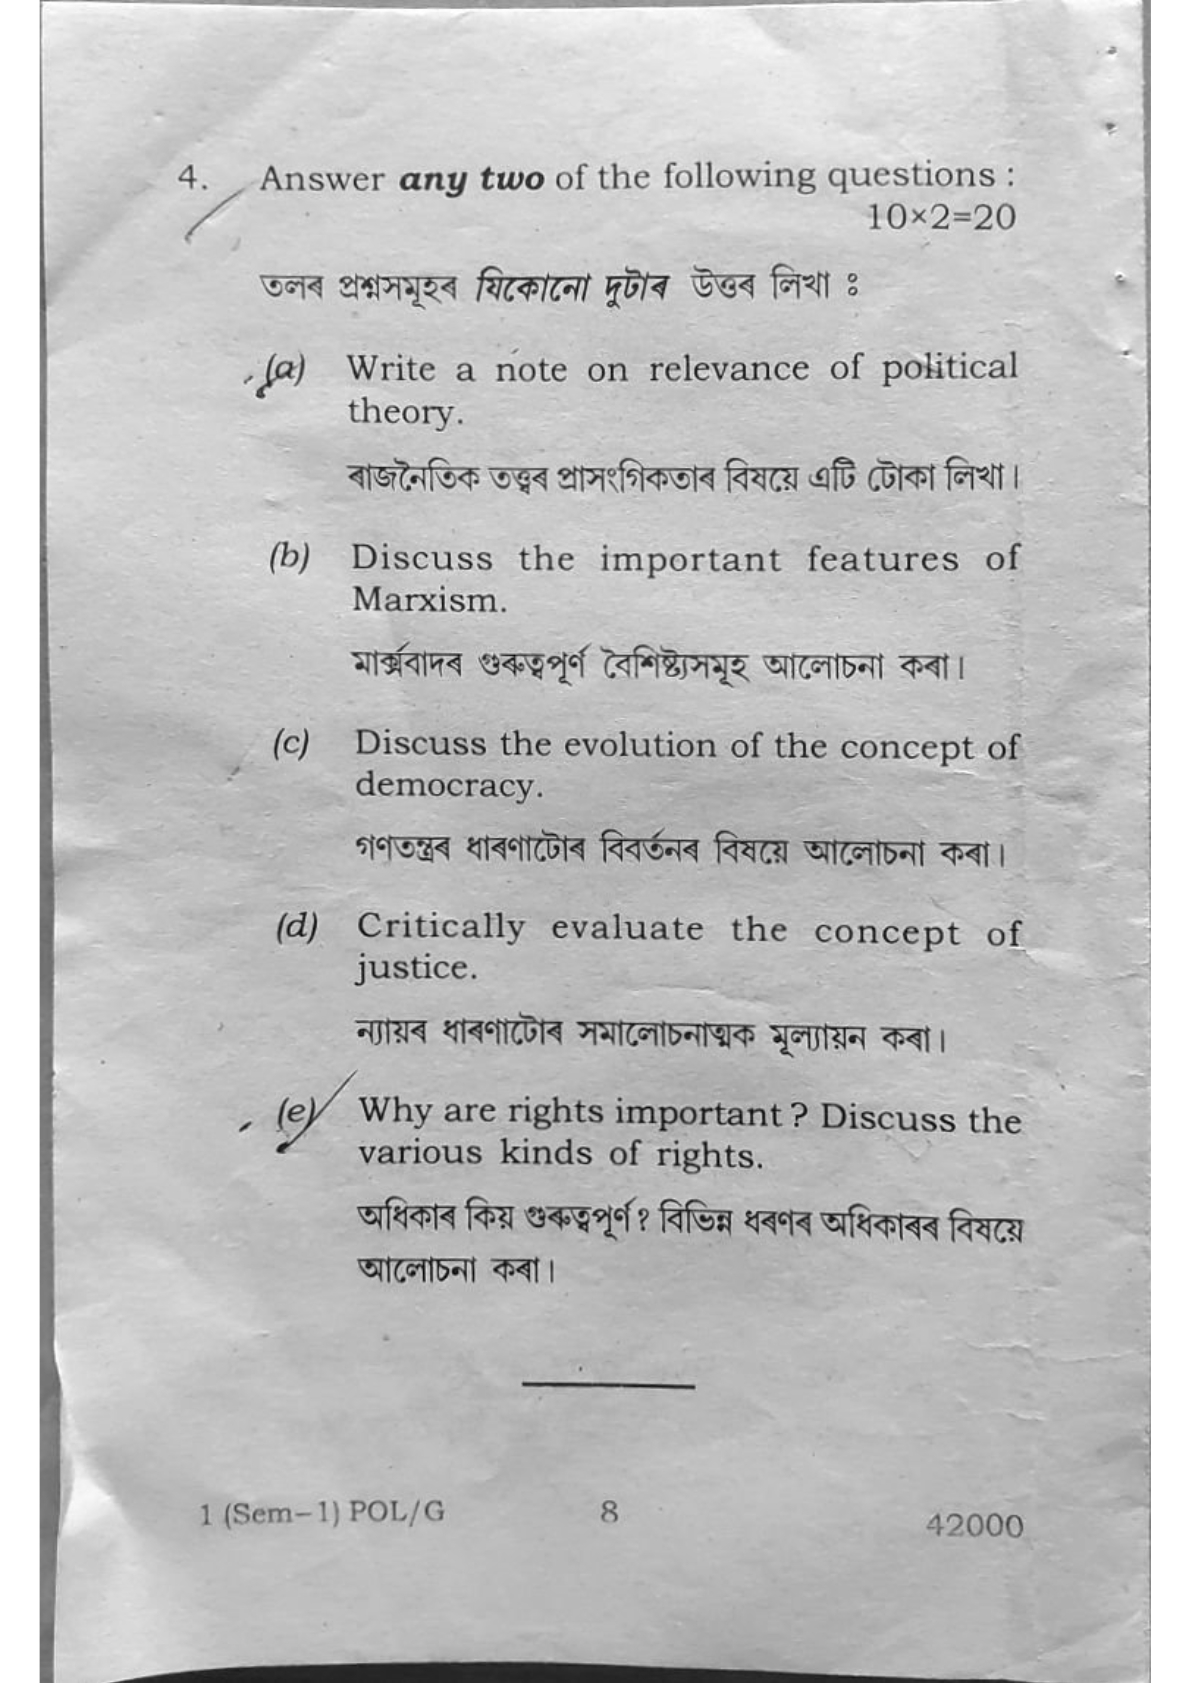 4. Answer any two of the following questions :
10×2=20
তলৰ প্ৰশ্নসমূহৰ যিকোনো দুটাৰ উত্তৰ লিখা ঃ
(a) Write a note on relevance of political
theory.
ৰাজনৈতিক তত্ত্বৰ প্ৰাসংগিকতাৰ বিষয়ে এটি টোকা লিখা।
(b) Discuss the important features of
Marxism.
মাৰ্ক্সবাদৰ গুৰুত্বপূৰ্ণ বৈশিষ্ট্যসমূহ আলোচনা কৰা।
(c) Discuss the evolution of the concept of
democracy.
গণতন্ত্ৰৰ ধাৰণাটোৰ বিবৰ্তনৰ বিষয়ে আলোচনা কৰা।
(d) Critically evaluate the concept of
justice.
ন্যায়ৰ ধাৰণাটোৰ সমালোচনাত্মক মূল্যায়ন কৰা।
(e) Why are rights important ? Discuss the
various kinds of rights.
অধিকাৰ কিয় গুৰুত্বপূৰ্ণ ? বিভিন্ন ধৰণৰ অধিকাৰৰ বিষয়ে
আলোচনা কৰা।
1 (Sem–1) POL/G 8 42000